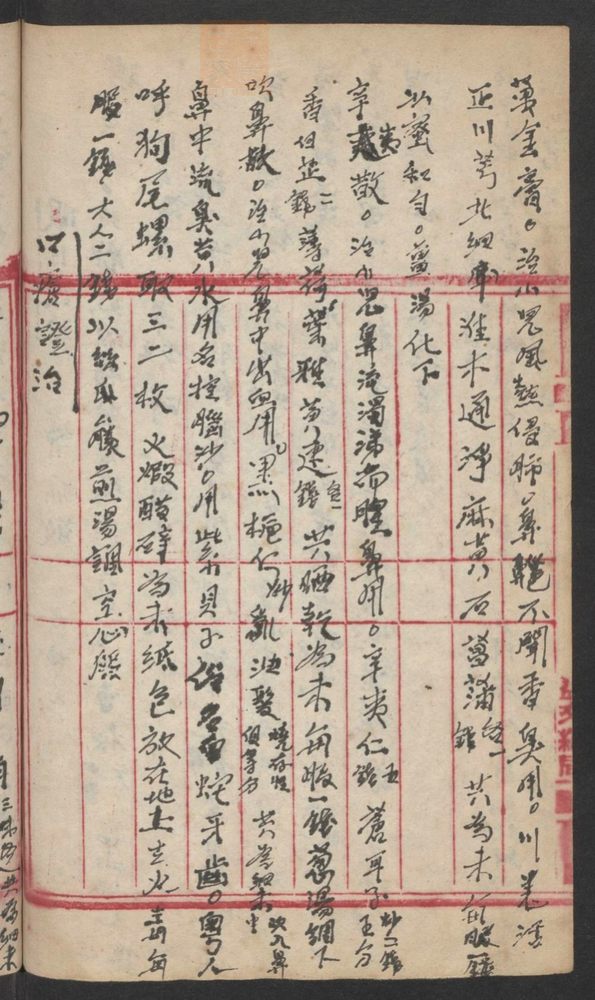 萬金膏。治小児風熱侵肺。鼻齆不聞香臭用。川羌活
正川芎北細辛淮木通淨麻黃石菖蒲各一錢共為末每服一錢
以蜜和勻。薑湯化下
辛夷散。治小児鼻流濁涕而腥鼻用。辛夷仁五錢蒼耳子五分
香白芷二錢薄荷葉雅黃連各一錢共晒乾為末每服一錢葱湯調下
吹鼻散。治小児鼻中出血用。黑梔仁炒亂油髮燒存性俱等分共為細末吹入鼻中
鼻中流臭黃水用名控腦沙。用紫貝子俗名蛇牙齒。粵人
呼狗尾螺取三二枚火煅醋碎為末紙包放在地上去火毒每
服一錢大人二錢以絲瓜藤煎湯調空心服
口瘡證治